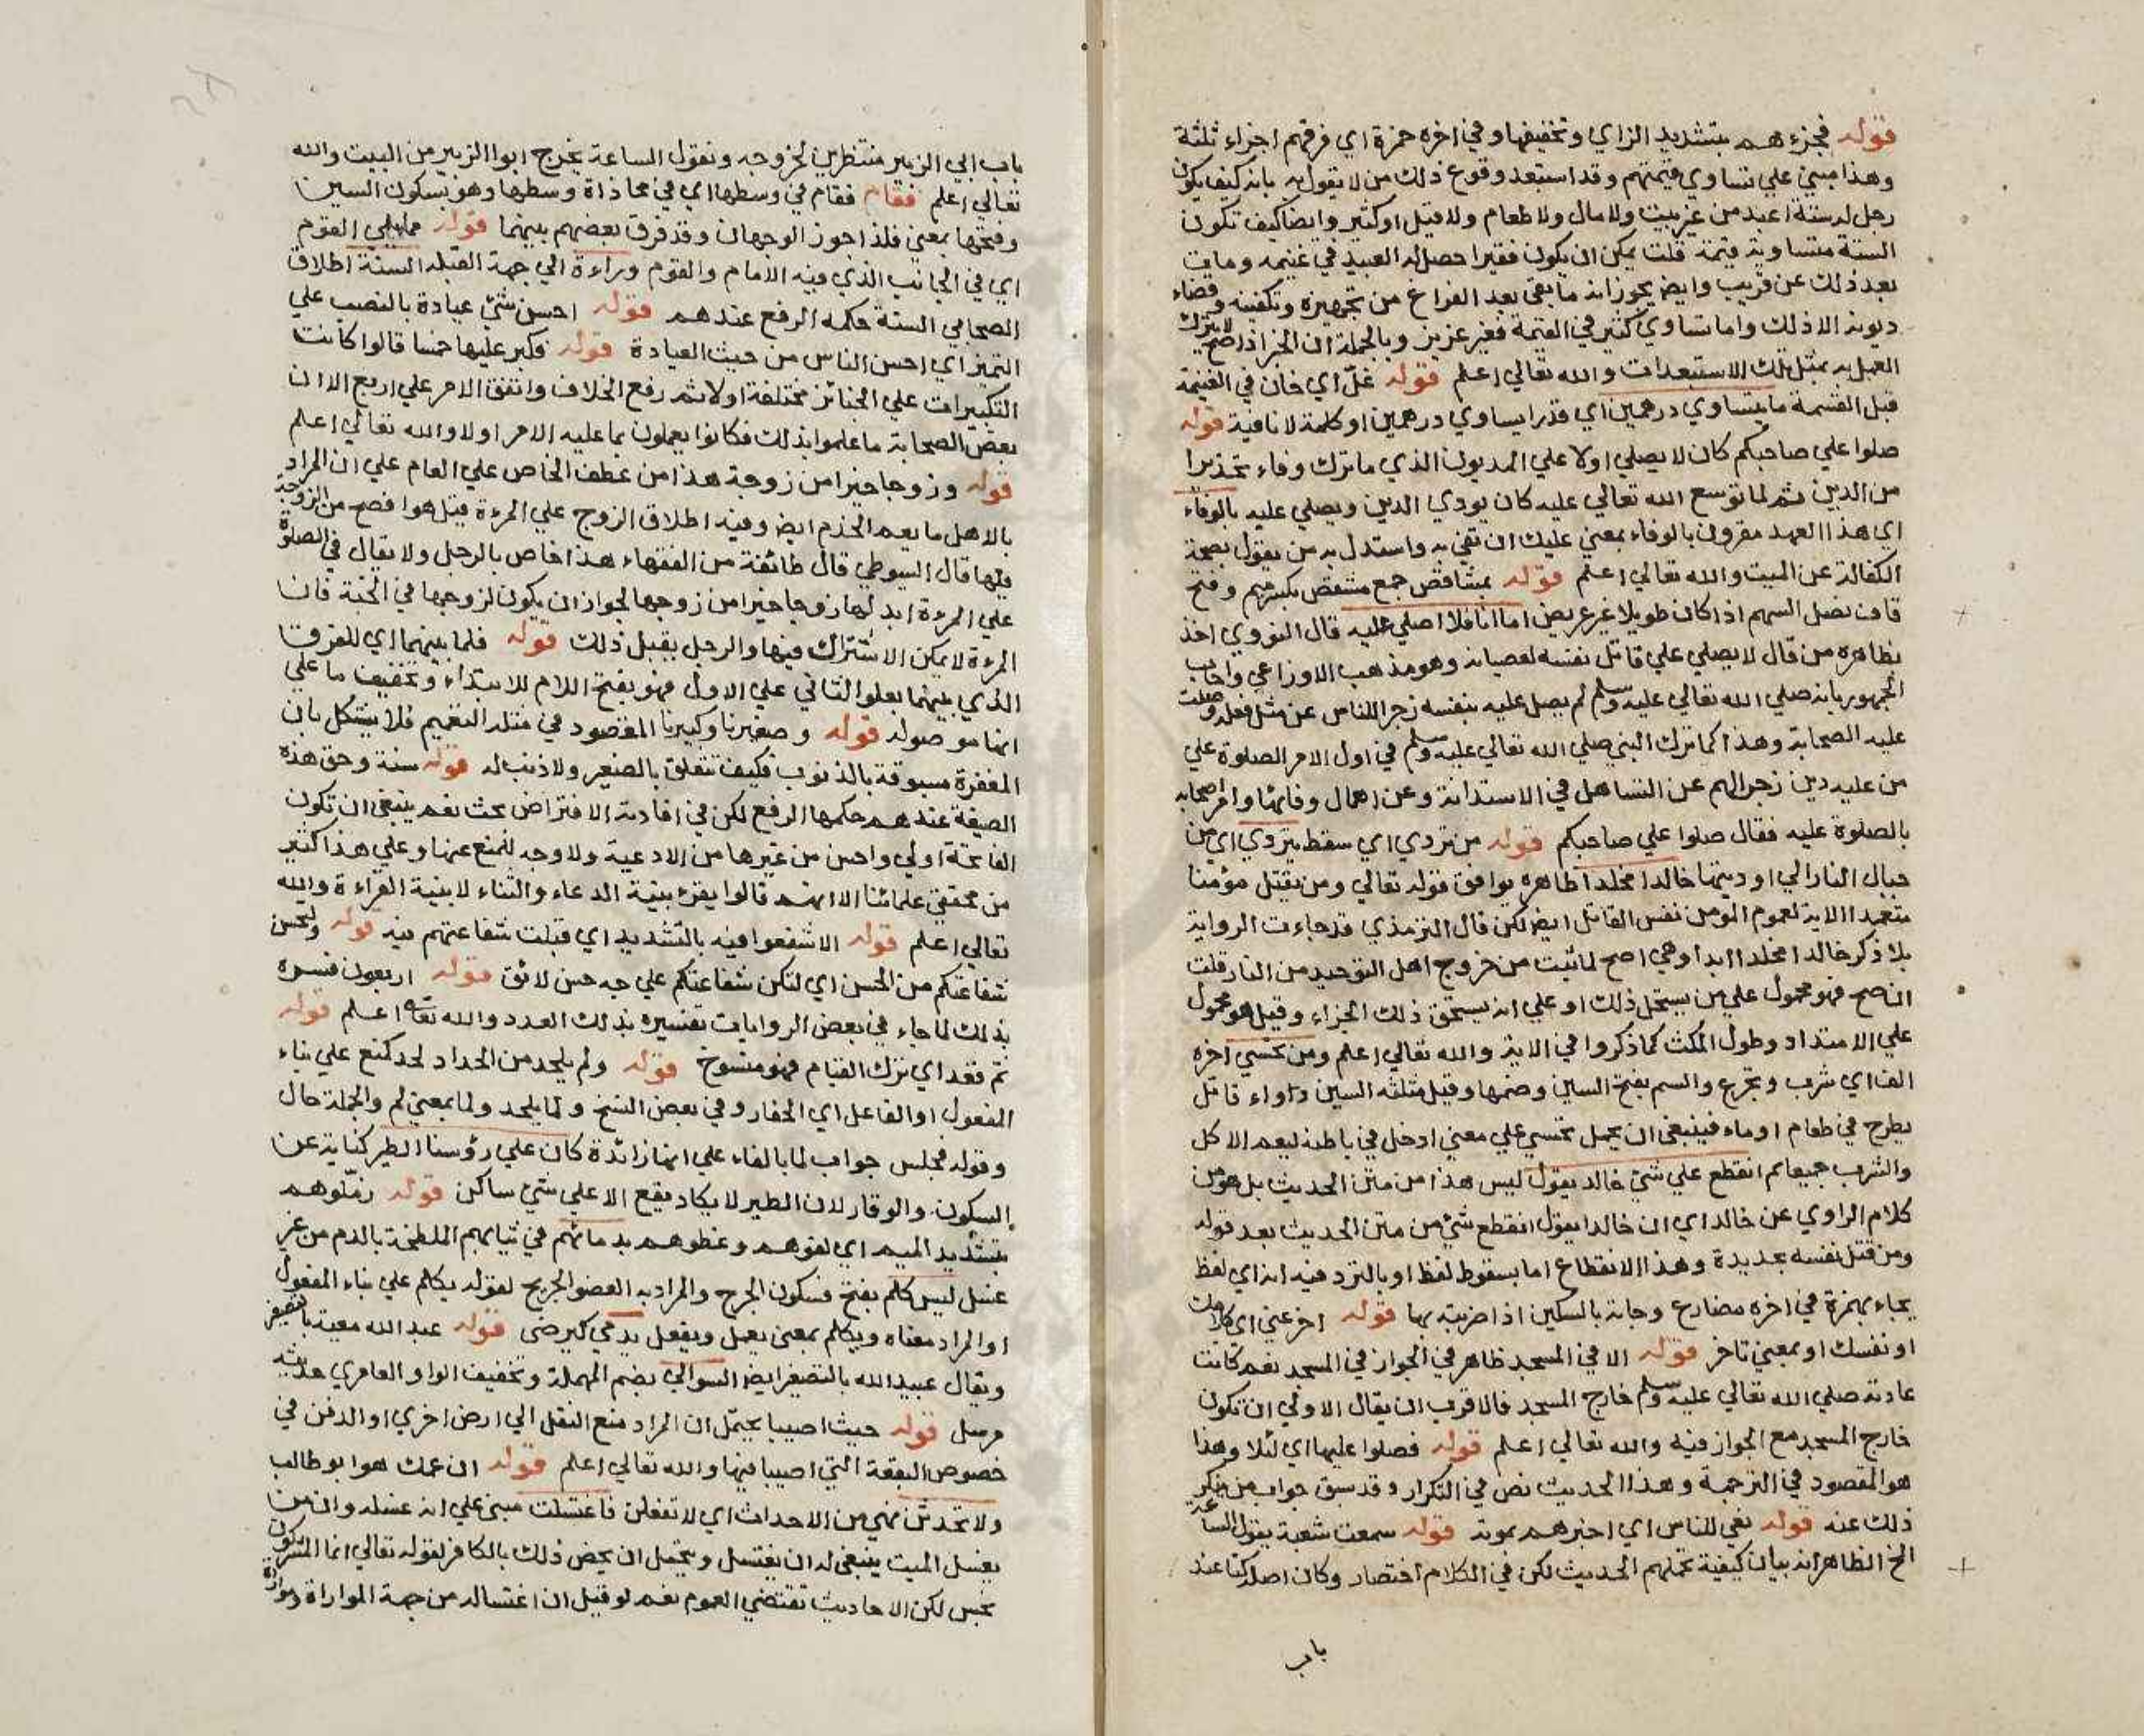 قوله فجزءهم بتشديد الزاي وتخفيفها وفي اخره همزة اي فرقهم اجزاء ثلثة
وهذا مبني علي تساوي قيمتهم وقد استبعد وقوع ذلك من لا يقول به بانه كيف يكون
رجل له ستة اعبد من غير بيت ولا مال ولا طعام ولا قليل او كثير وايضا كيف تكون
الستة متساوية قيمة قلت يمكن ان يكون فقيرا حصل له العبيد في غنيمة ومات
بعد ذلك عن قريب وايض يجوز انه ما بقي بعد الفراغ من تجهيزه وتكفينه وقضاء
ديونه الا ذلك واما تساوي كثير في القيمة فغير عزيز وبالجملة ان الخبر اذا صح لا يترك
العمل به بمثل تلك الاستبعدات والله تعالي اعلم قوله غل اي خان في الغنيمة
قبل القسمة ما يتساوي درهمين اي قدرا يساوي درهمين او كلمة لا نافية قوله
صلوا علي صاحبكم كان لا يصلي اولا علي المديون الذي ما ترك وفاء تحذيرا
من الدين ثم لما توسع الله تعالي عليه كان يودي الدين ويصلي عليه بالوفاء
اي هذا العهد مقرون بالوفاء بمعني عليك ان تفي به واستدل به من يقول بصحة
الكفالة عن الميت والله تعالي اعلم قوله بمشاقص جمع مشقص بكسر ميم وفتح
قاف نصل السهم اذا كان طويلا غير عريض اما انا فلا اصلي عليه قال النووي اخذ
بظاهره من قال لا يصلي علي قاتل نفسه لعصيانه وهو مذهب الاوزاعي واجاب
الجمهور بانه صلي الله تعالي عليه وسلم لم يصل عليه بنفسه زجرا للناس عن مثل فعله وصلت
عليه الصحابة وهذا كما ترك النبي صلي الله تعالي عليه وسلم في اول الامر الصلوة علي
من عليه دين زجرا لهم عن التساهل في الاستدانة وعن اهمال وفائها وامر اصحابه
بالصلوة عليه فقال صلوا علي صاحبكم قوله من تردي اي سقط يتردي اي من
جبال النار الي اوديتها خالدا مخلدا ظاهره يوافق قوله تعالي ومن يقتل مؤمنا
متعمدا الاية لعموم المومن نفس القاتل ايض لكن قال الترمذي قد جاءت الرواية
بلا ذكر خالدا مخلدا ابدا وهي اصح لما ثبت من خروج اهل التوحيد من النار قلت
ان صح فهو محمول علي من يستحل ذلك او علي انه يستحق ذلك الجزاء وقيل هو محمول
علي الامتداد وطول المكث كما ذكروا في الاية والله تعالي اعلم ومن تحسي اخره
الف اي شرب وتجرع والسم بفتح السين وضمها وقيل مثلثة السين دواء قاتل
يطرح في طعام او ماء فينبغي ان يحمل تحسي علي معني ادخل في باطنه ليعم الاكل
والشرب جميعا ثم انقطع علي شئ خالد يقول ليس هذا من متن الحديث بل هو من
كلام الراوي عن خالد اي ان خالدا يقول انقطع شئ من متن الحديث بعد قوله
ومن قتل نفسه بحديدة وهذا الانقطاع اما بسقوط لفظ او بالتردد فيه انه اي لفظ
يجاء بهمزة في اخره مضارع وجاءه بالسكين اذا ضربته بها قوله اخر عني اي كلامك
او نفسك او بمعني تاخر قوله الا في المسجد ظاهر في الجواز في المسجد نعم كانت
عادته صلي الله تعالي عليه وسلم خارج المسجد فالاقرب ان يقال الاولي ان تكون
خارج المسجد مع الجواز فيه والله تعالي اعلم قوله فصلوا عليها اي لئلا وهذا
هو المقصود في الترجمة وهذا الحديث نص في التكرار وقد سبق جواب من ينكر
ذلك عنه قوله نعي للناس اي اخبرهم بموته قوله سمعت شعبة يقول الساعة
الخ الظاهر انه بيان كيفية تحملهم الحديث لكن في الكلام اختصار وكان اصله كنا عند
باب
باب ابي الزبير منتظرين لخروجه ونقول الساعة يخرج ابو الزبير من البيت والله
تعالي اعلم فقام فقام في وسطها اي في محاذاة وسطها وهو بسكون السين
وفتحها بمعني فلذا جوز الوجهان وقد فرق بعضهم بينهما قوله مما يلي القوم
اي في الجانب الذي فيه الامام والقوم وراءه الي جهة القبلة السنة اطلاق
الصحابي السنة حكمه الرفع عندهم قوله احسن شئ عبادة بالنصب علي
التميز اي احسن الناس من حيث العبادة قوله فكبر عليها خمسا قالوا كانت
التكبيرات علي الجنائز مختلفة اولا ثم رفع الخلاف واتفق الامر علي اربع الا ان
بعض الصحابة ما علموا بذلك فكانوا يعملون بما عليه الامر اولا والله تعالي اعلم
قوله وزوجا خيرا من زوجة هذا من عطف الخاص علي العام علي ان المراد
بالاهل ما يعم الخدم ايض وفيه اطلاق الزوج علي المرءة قيل هو افصح من الزوجة
فيها قال السيوطي قال طائفة من الفقهاء هذا خاص بالرجل ولا يقال في الصلوة
علي المرءة ابدلها زوجا خيرا من زوجها لجواز ان يكون لزوجها في الجنة فان
المرءة لا يمكن الاشتراك فيها والرجل يقبل ذلك قوله فلما بينهما اي للفرق
الذي بينهما يعلو الثاني علي الاول فهو بفتح اللام للابتداء وتخفيف ما علي
انها موصولة قوله وصغيرنا وكبيرنا المقصود في مثله التعميم فلا يشكل بان
المغفرة مسبوقة بالذنوب فكيف تتعلق بالصغير ولا ذنب له قوله سنة وحق هذه
الصيغة عندهم حكمها الرفع لكن في افادته الافتراض بحث نعم ينبغي ان تكون
الفاتحة اولي واحسن من غيرها من الادعية ولا وجه للمنع عنها وعلي هذا كثير
من محققي علمائنا الا انهم قالوا يقرء بنية الدعاء والثناء لا بنية القراءة والله
تعالي اعلم قوله الا شفعوا فيه بالتشديد اي قبلت شفاعتهم فيه قوله ولتحسن
شفاعتكم من الحسن اي لتكن شفاعتكم علي وجه حسن لائق قوله اربعون فسره
بذلك لما جاء في بعض الروايات تفسيره بذلك العدد والله تعالي اعلم قوله
ثم قعد اي ترك القيام فهو منسوخ قوله ولم يلحد من الحداد لحد كمنع علي بناء
المفعول او الفاعل اي الحفار وفي بعض النسخ ولما يلحد ولما بمعني لم والجملة حال
وقوله فجلس جواب لما بالفاء علي انها زائدة كان علي رؤسنا الطير كناية عن
السكون والوقار لان الطير لا يكاد يقع الا علي شئ ساكن قوله زملوهم
بتشديد الميم اي لفوهم وغطوهم بدمائهم في ثيابهم الملطخة بالدم من غير
غسل ليس كلم بفتح فسكون الجرح والمراد به العضو الجريح لقوله يكلم علي بناء المفعول
او المراد معناه ويكلم بمعني يعمل ويفعل يدمي كيرضي قوله عبد الله معية بالتصغير
ويقال عبيد الله بالتصغير ايض السوائي بضم المهملة وتخفيف الواو العامري حديثه
مرسل قوله حيث اصيبا يحتمل ان المراد منع النقل الي ارض اخري او الدفن في
خصوص البقعة التي اصيبا فيها والله تعالي اعلم قوله ان عمك هو ابو طالب
ولا تحدثن نهي من الاحداث اي لا تفعلن فاغتسلت مبني علي انه غسله وان من
يغسل الميت ينبغي له ان يغتسل ويحتمل ان يخص ذلك بالكافر لقوله تعالي انما المشركون
نجس لكن الاحاديث تقتضي العموم نعم لو قيل ان اغتساله من جهة المواراة